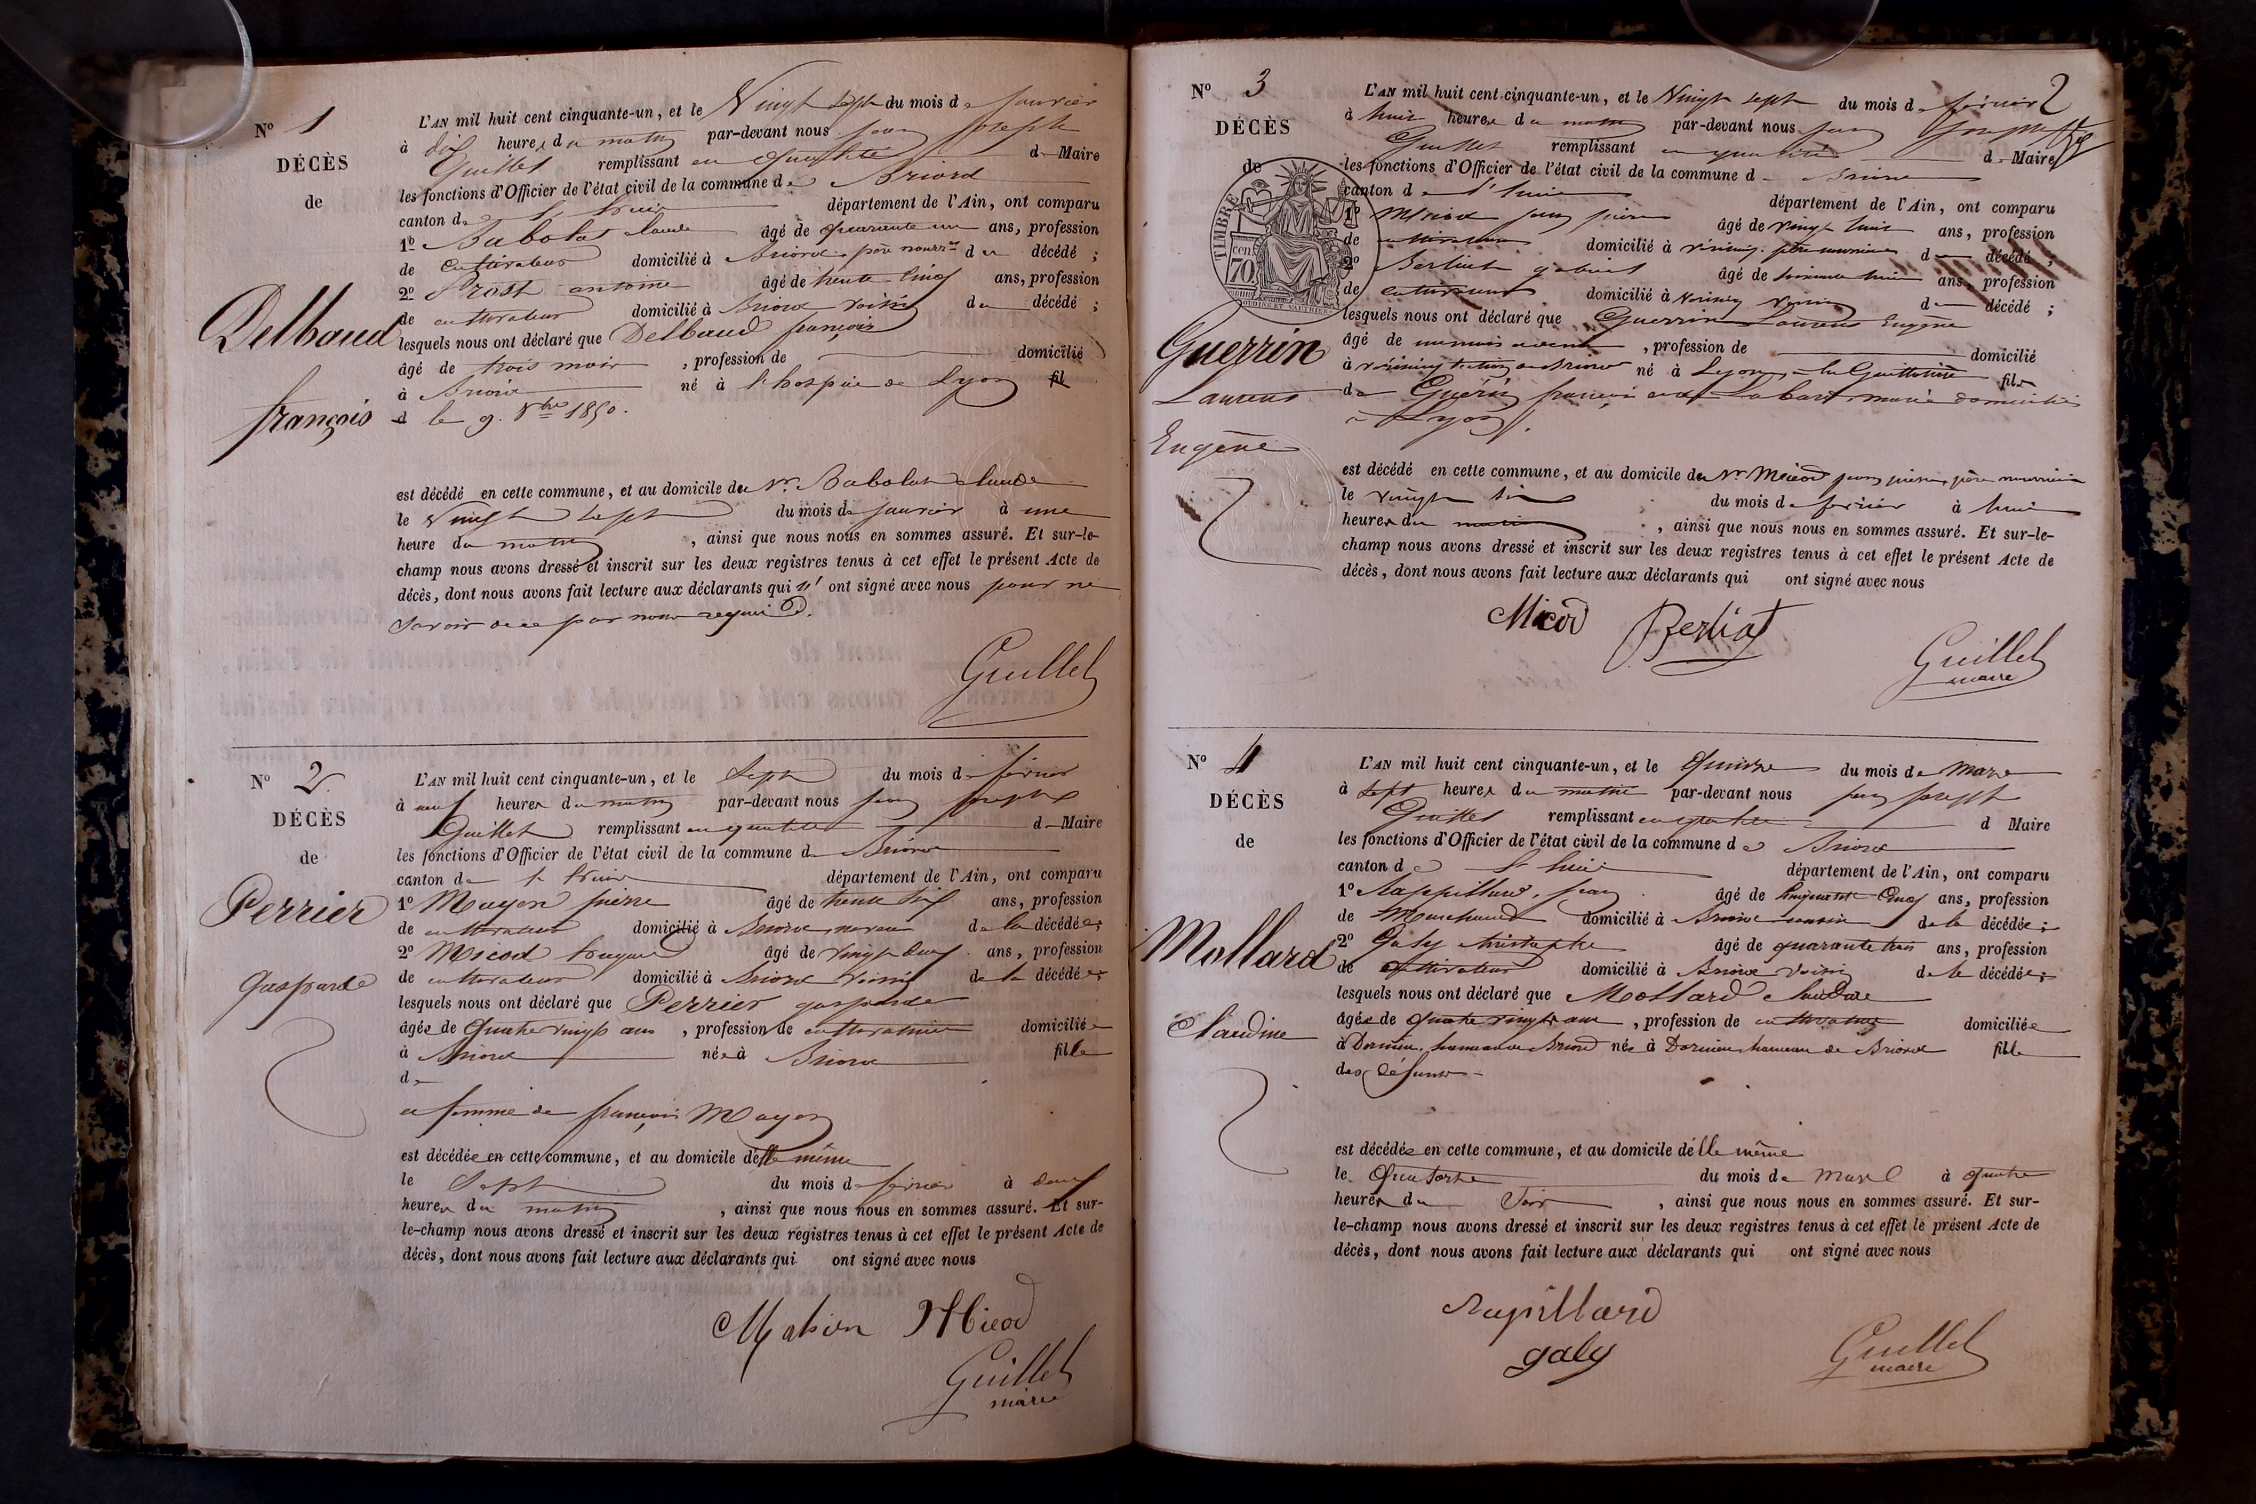 N° 1
DÉCÈS
de
Delbaud
françois
L'AN mil huit cent cinquante-un, et le Vingt sept du mois de janvier
à dix heures du matin par-devant nous jean joseph
Guillet remplissant en qualité de Maire
les fonctions d'Officier de l'état civil de la commune de Briord
canton de département de l'Ain, ont comparu
1° Babolat claude âgé de quarante un ans, profession
de cultivateur domicilié à Briord, père nourr. du décédé ;
2° Prost antoine âgé de trente cinq ans, profession
de cultivateur domicilié à Briord voisin du décédé ;
lesquels nous ont déclaré que Delbaud françois
âgé de trois mois , profession de domicilié
à Briord né à l'hospice de Lyon fil
d le 9. 8bre 1850.
est décédé en cette commune, et au domicile du Sr. Babolat claude
le Vingt sept du mois de janvier à une
heure du matin , ainsi que nous nous en sommes assuré. Et sur-le-
champ nous avons dressé et inscrit sur les deux registres tenus à cet effet le présent Acte de
décès, dont nous avons fait lecture aux déclarants qui n' ont signé avec nous pour ne
savoir de ce par nous requis.
Guillet
N° 2
DÉCÈS
de
Perrier
gasparde
L'AN mil huit cent cinquante-un, et le Sept du mois de février
à neuf heures du matin par-devant nous jean joseph
Guillet remplissant en qualité de Maire
les fonctions d'Officier de l'état civil de la commune de Briord
canton de département de l'Ain, ont comparu
1° Mayon pierre âgé de trente six ans, profession
de cultivateur domicilié à Briord neveu de la décédée ;
2° Micod âgé de vingt ans, profession
de cultivateur domicilié à Briord voisin de la décédée ;
lesquels nous ont déclaré que Perrier gasparde
âgée de Quatre vingts ans , profession de domiciliée
à Briord née à Briord fille
de
et femme de françois Mayon
est décédée en cette commune, et au domicile d'elle même
le Sept du mois de février à deux
heures du matin , ainsi que nous nous en sommes assuré. Et sur-
le-champ nous avons dressé et inscrit sur les deux registres tenus à cet effet le présent Acte de
décès, dont nous avons fait lecture aux déclarants qui ont signé avec nous
Micod
Guillet
maire
2
N° 3
DÉCÈS
de
TIMBRE
70
Guerrin
Laurens
Eugène
L'AN mil huit cent cinquante-un, et le Vingt sept du mois de février
à huit heures du matin par-devant nous jean joseph
Guillet remplissant en qualité de Maire
les fonctions d'Officier de l'état civil de la commune de Briord
canton de département de l'Ain, ont comparu
1° Micod jean pierre âgé de vingt huit ans, profession
de cultivateur domicilié à père nourricier du décédé ;
2° Berliat gabriel âgé de ans, profession
de cultivateur domicilié à voisin du décédé ;
lesquels nous ont déclaré que Guerrin Laurens Eugène
âgé de , profession de domicilié
à section de Briord né à Lyon, à la Guillotière fils
de Guérin françois et de Labart, marie domiciliés
à Lyon.
est décédé en cette commune, et au domicile du Sr Micod jean pierre, père nourricier
le vingt six du mois de février à huit
heures du matin , ainsi que nous nous en sommes assuré. Et sur-le-
champ nous avons dressé et inscrit sur les deux registres tenus à cet effet le présent Acte de
décès, dont nous avons fait lecture aux déclarants qui ont signé avec nous
Micod Berliat
Guillet
maire
N° 4
DÉCÈS
de
Mollard
Claudine
L'AN mil huit cent cinquante-un, et le Quinze du mois de Mars
à sept heures du matin par-devant nous jean joseph
Guillet remplissant en qualité d Maire
les fonctions d'Officier de l'état civil de la commune de Briord
canton de département de l'Ain, ont comparu
1° Rappillard, jean âgé de cinquante cinq ans, profession
de Marchand domicilié à Briord cousin de la décédée ;
2° Galy christophe âgé de quarante trois ans, profession
de cultivateur domicilié à Briord voisin de la décédée ;
lesquels nous ont déclaré que Mollard claudine
âgée de quatre vingts ans , profession de domiciliée
à hameau de Briord née à hameau de Briord fille
des défunts
est décédée en cette commune, et au domicile d'elle même
le Quatorze du mois de Mars à quatre
heures du Soir , ainsi que nous nous en sommes assuré. Et sur-
le-champ nous avons dressé et inscrit sur les deux registres tenus à cet effet le présent Acte de
décès, dont nous avons fait lecture aux déclarants qui ont signé avec nous
Rapillard
galy
Guillet
maire